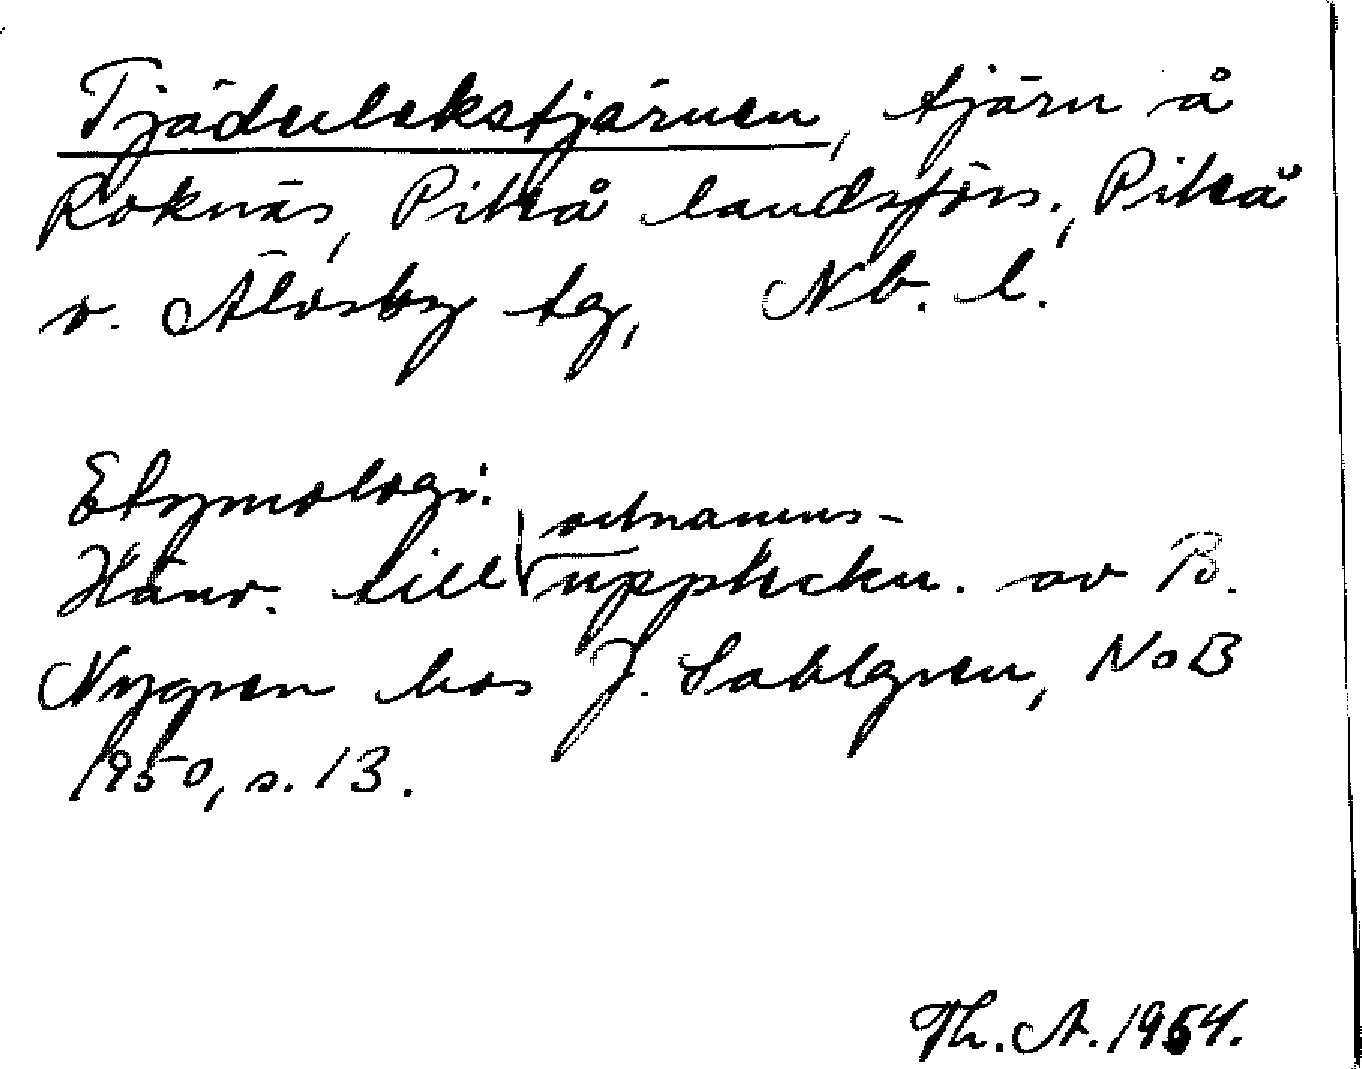 Tjäderlekstjärnen, tjärn å
Roknäs, Piteå landsförs., Piteå
o. Älvsby tg, Nb. l.
Etymologi:
Hänv. till ortnamns-
uppteckn. av B.
Nygren hos J. Sahlgren, NoB
1950, s. 13.
Th. A. 1954.